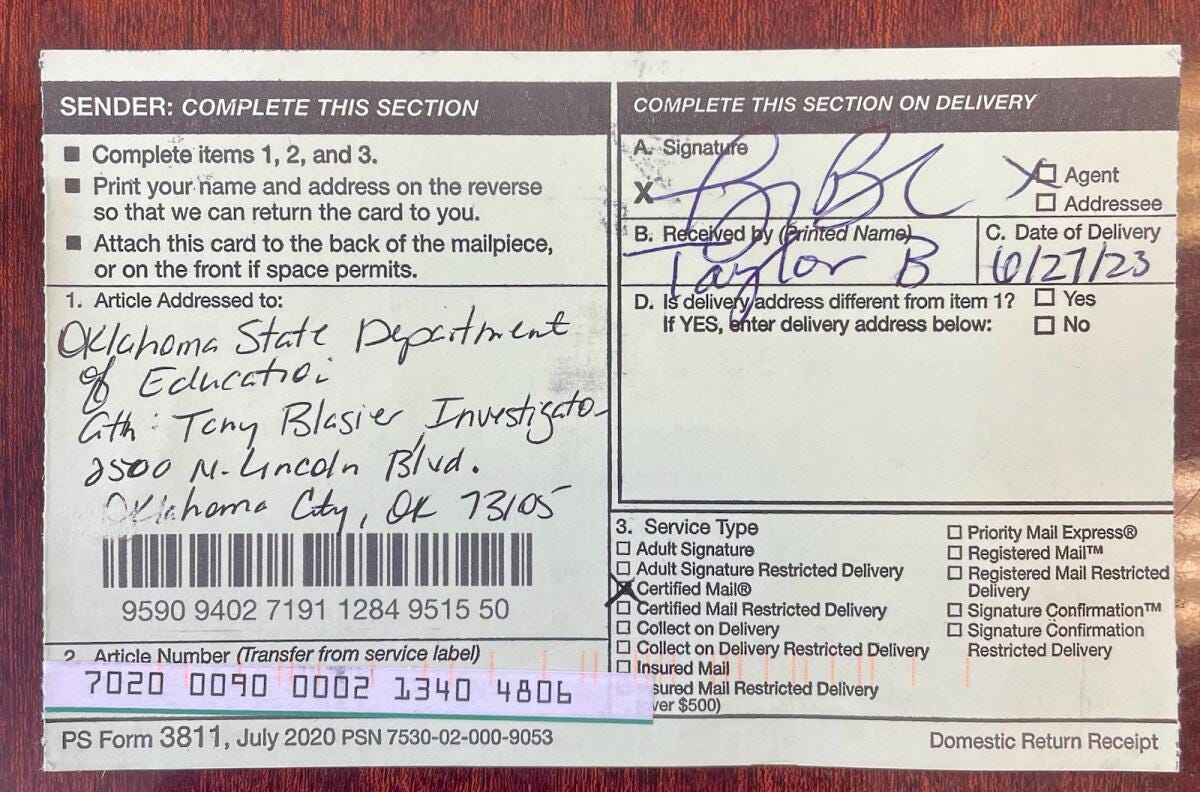 SENDER: COMPLETE THIS SECTION
■ Complete items 1, 2, and 3.
■ Print your name and address on the reverse
so that we can return the card to you.
■ Attach this card to the back of the mailpiece,
or on the front if space permits.
1. Article Addressed to:
Oklahoma State Department
of Education
Attn: Tony Blasier, Investigator
2500 N. Lincoln Blvd.
Oklahoma City, OK 73105
9590 9402 7191 1284 9515 50
2. Article Number (Transfer from service label)
7020 0090 0002 1340 4806
PS Form 3811, July 2020 PSN 7530-02-000-9053
COMPLETE THIS SECTION ON DELIVERY
A. Signature
X
☐ Agent
☐ Addressee
B. Received by (Printed Name)
Taylor B
C. Date of Delivery
6/27/23
D. Is delivery address different from item 1? ☐ Yes
If YES, enter delivery address below: ☐ No
3. Service Type
☐ Adult Signature
☐ Adult Signature Restricted Delivery
☒ Certified Mail®
☐ Certified Mail Restricted Delivery
☐ Collect on Delivery
☐ Collect on Delivery Restricted Delivery
☐ Insured Mail
sured Mail Restricted Delivery
ver $500)
☐ Priority Mail Express®
☐ Registered Mail™
☐ Registered Mail Restricted
Delivery
☐ Signature Confirmation™
☐ Signature Confirmation
Restricted Delivery
Domestic Return Receipt